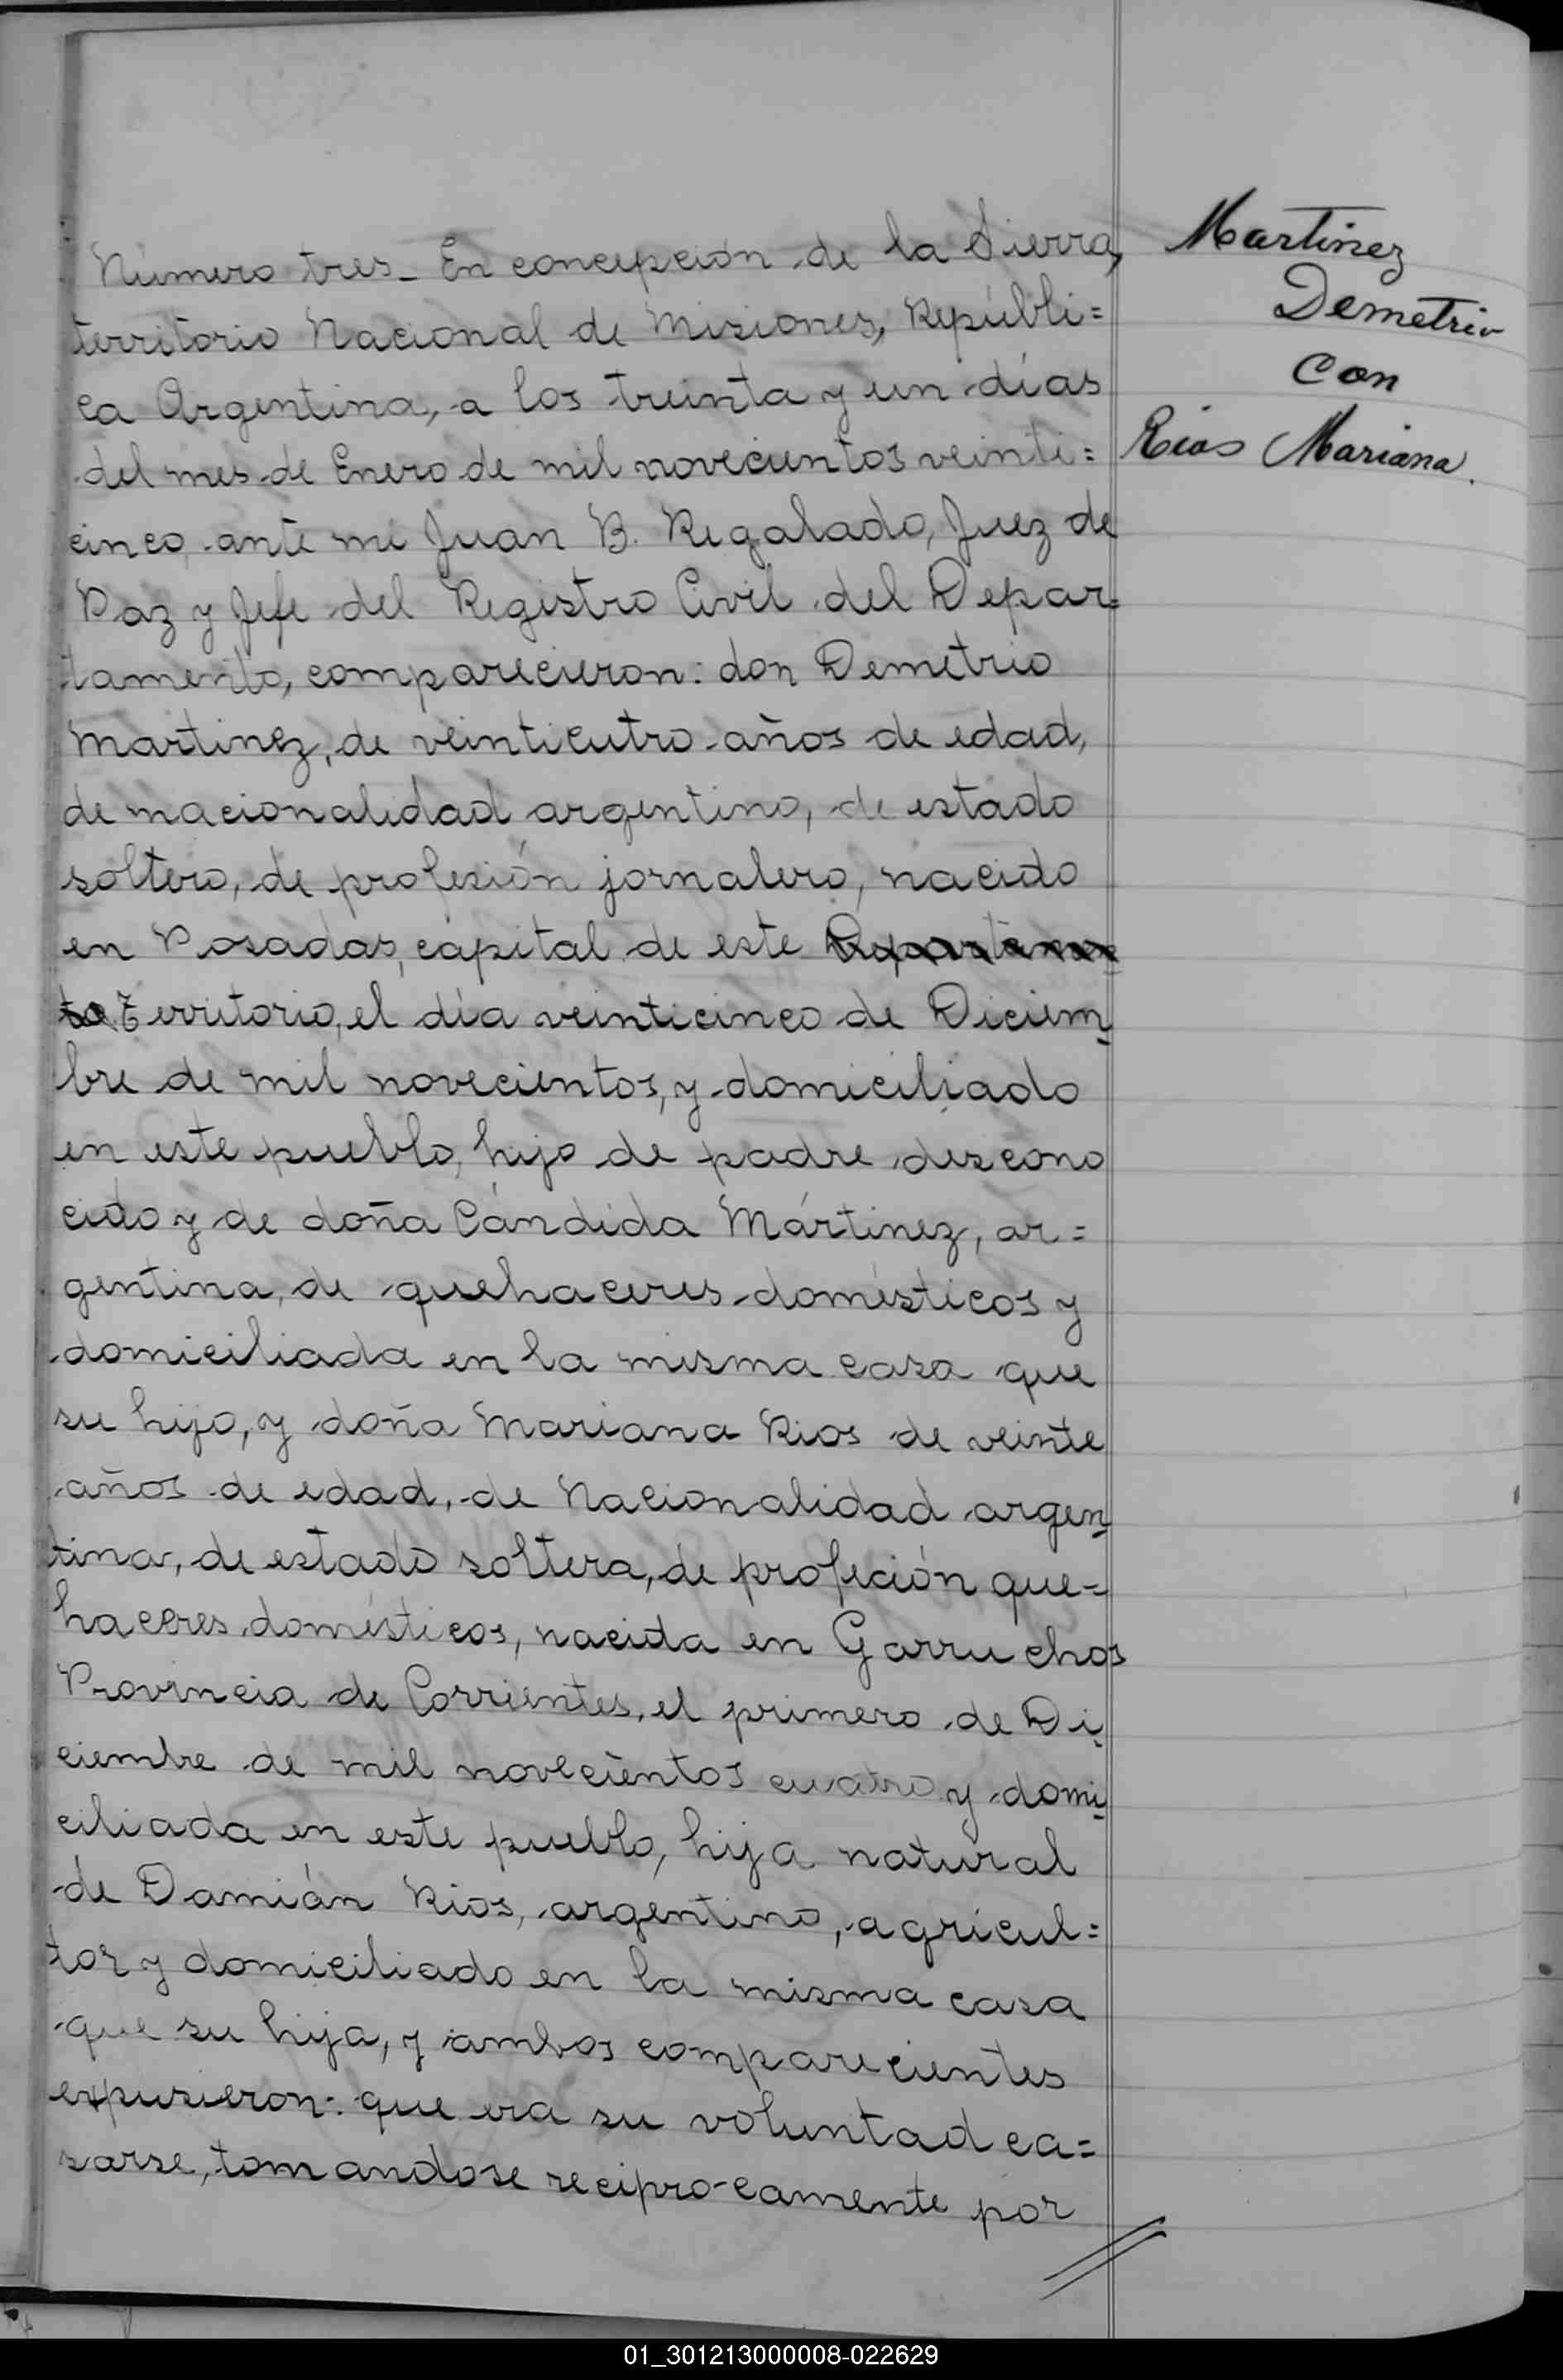 Número tres- En concepción de la Sierra,
territorio Nacional de Misiones, Repúbli=
ca Argentina, a los treinta y un días
del mes de Enero de mil novecientos veinti=
cinco, ante mi Juan B. Regalado, Juez de
Paz y Jefe del Registro Civil del Depar=
tamento, comparecieron: don Demetrio
Martinez, de veinticutro años de edad,
de nacionalidad argentino, de estado
soltero, de profesión jornalero, nacido
en Posadas, capital de este Departamen
to Territorio, el día veinticinco de Diciem-
bre de mil novecientos, y domiciliado
en este pueblo, hijo de padre descono
cido y de doña Cándida Mártinez, ar=
gentina, de quehaceres domésticos y
domiciliada en la misma casa que
su hijo, y doña Mariana Rios de veinte
años de edad, de Nacionalidad argen-
tina, de estado soltera, de profeción que=
haceres domésticos, nacida en Garruchos
Provincia de Corrientes, el primero de Di-
ciembre de mil novecientos cuatro y domi-
ciliada en este pueblo, hija natural
de Damián Rios, argentino, agricul=
tor y domiciliado en la misma casa
que su hija, y ambos comparecientes
expusieron: que era su voluntad ca=
sarse, tomandose recipro-camente por
Martinez
Demetrio
Con
Rios Mariana.
01_301213000008-022629